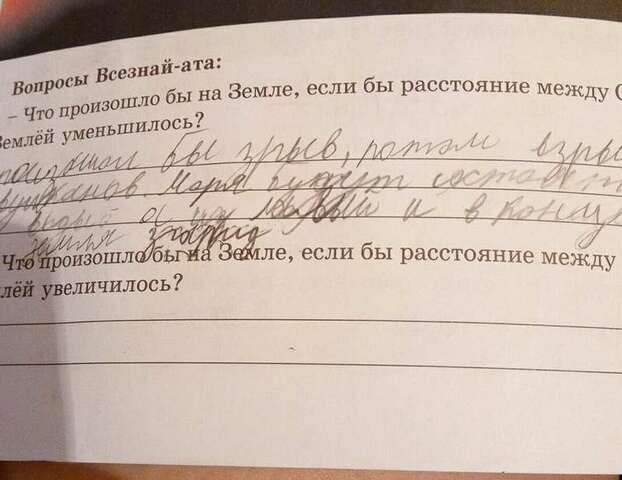 Вопросы Всезнай-ата:
– Что произошло бы на Земле, если бы расстояние между С
Землёй уменьшилось?
бы зрыв, потом взры
Моря будут состоять
а из лавы и в конц
земля
Что произошло бы на Земле, если бы расстояние между
лёй увеличилось?